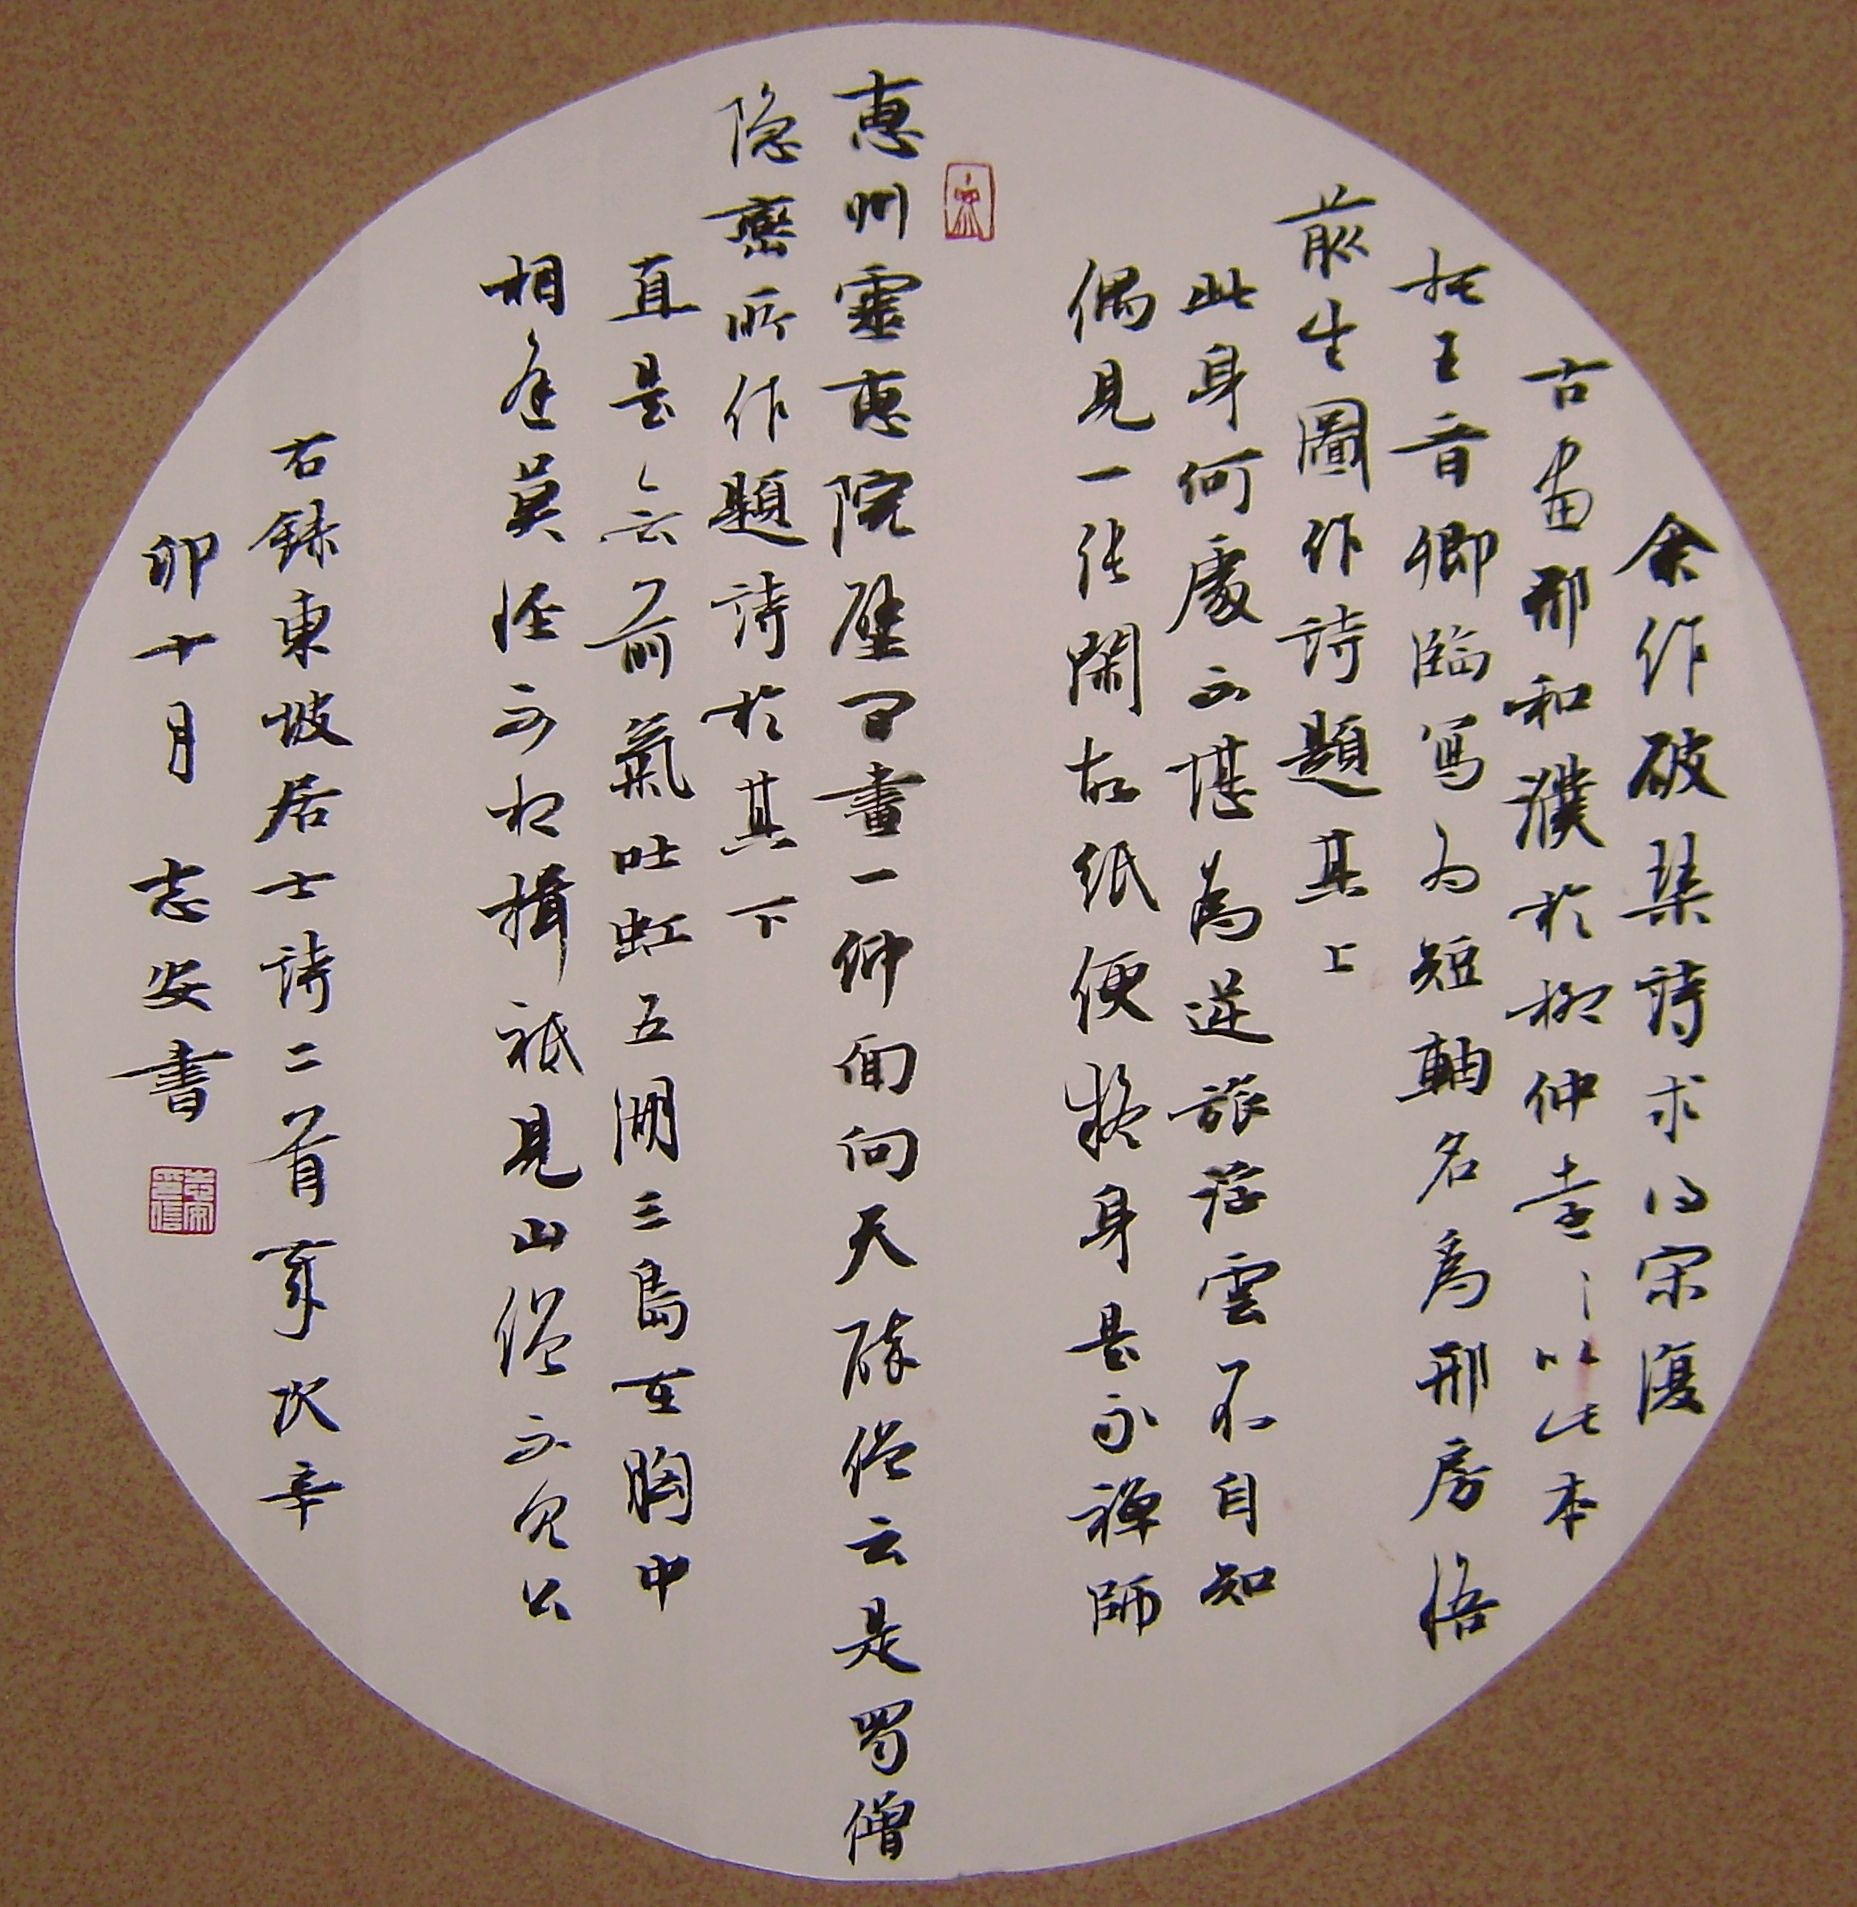 余作破琴詩求得宋復
古畫邢和濮於柳仲遠〻以此本
托王晉卿臨寫為短軸名為邢房悟
前生圖作詩題其上
此身何處不堪為逆旅浮雲不自知
偶見一張閑故紙便疑身是永禪師
惠州靈惠院壁間畫一仰面向天醉僧云是蜀僧
隱巒所作題詩於其下
直是无前氣吐虹五湖三島在胸中
相逢莫怪不相揖祗見山僧不見公
右錄東坡居士詩二首歲次辛
卯十月 志安書